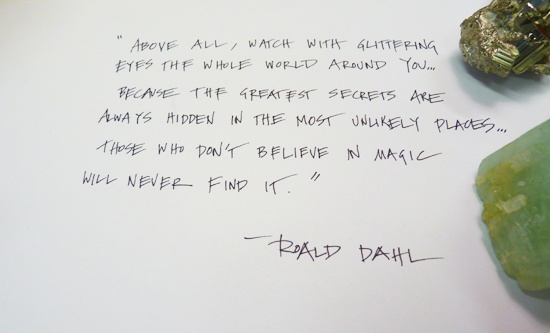 "ABOVE ALL, WATCH WITH GLITTERING
EYES THE WHOLE WORLD AROUND YOU...
BECAUSE THE GREATEST SECRETS ARE
ALWAYS HIDDEN IN THE MOST UNLIKELY PLACES...
THOSE WHO DON'T BELIEVE IN MAGIC
WILL NEVER FIND IT."
— ROALD DAHL